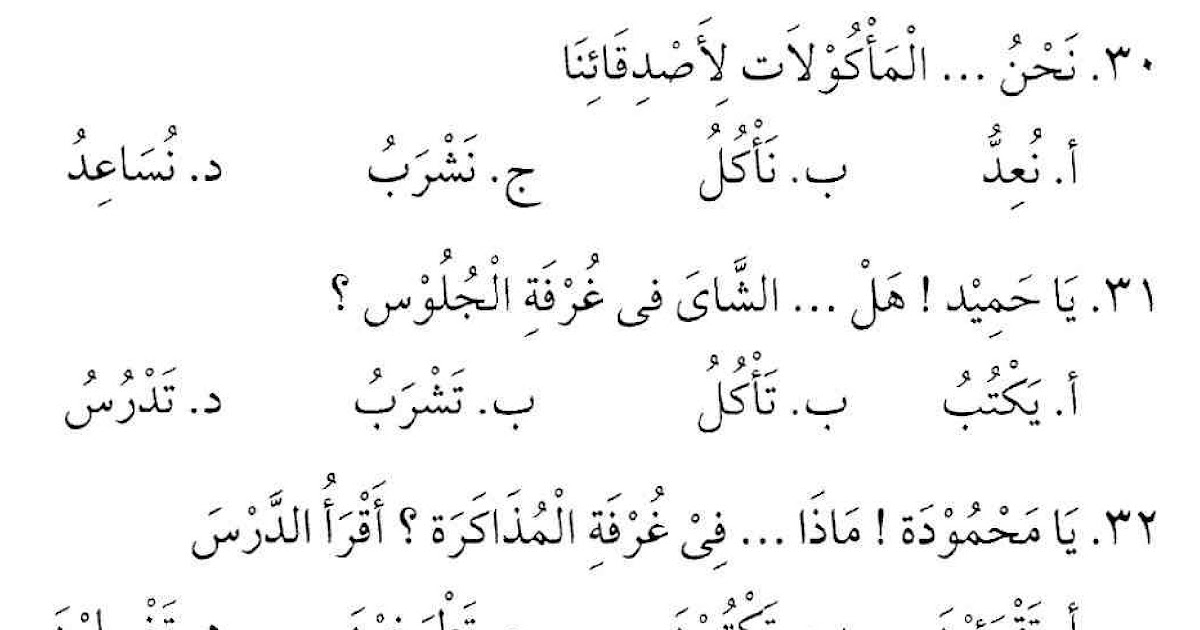 ٣٠. نَحْنُ ... الْمَأْكُوْلاَت لِأَصْدِقَائِنَا
أ. نُعِدُّ ب. نَأْكُلُ ج. نَشْرَبُ د. نُسَاعِدُ
٣١. يَا حَمِيْد ! هَلْ ... الشَّاىَ فى غُرْفَةِ الْجُلُوْس ؟
أ. يَكْتُبُ ب. تَأْكُلُ ب. تَشْرَبُ د. تَدْرُسُ
٣٢. يَا مَحْمُوْدَة ! مَاذَا ... فِىْ غُرْفَةِ الْمُذَاكَرَة ؟ أَقْرَأُ الدَّرْسَ